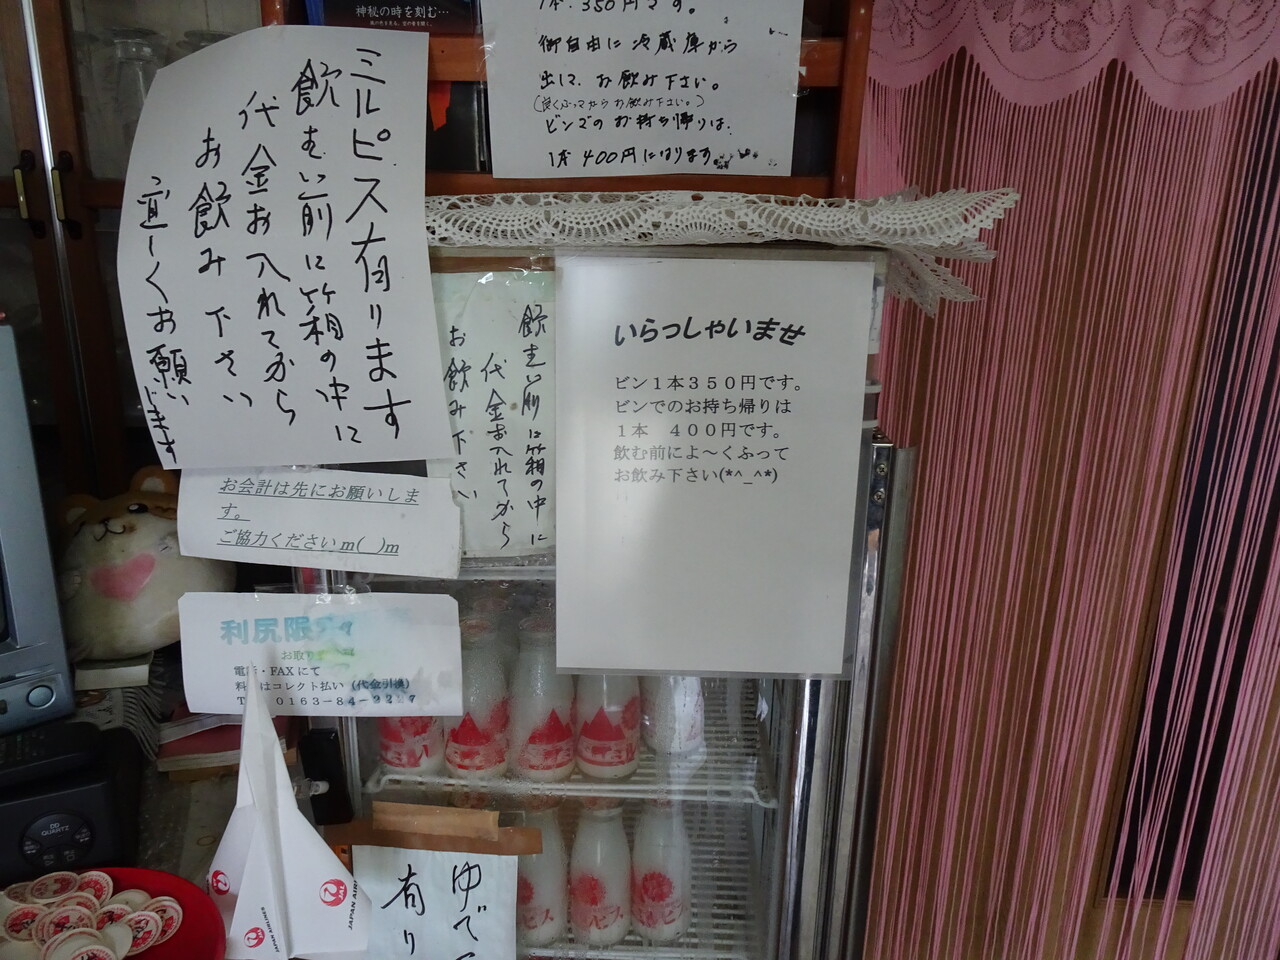 神秘の時を刻む…
1本.350円です。
御自由に冷蔵庫から
出して、お飲み下さい。
(良くふってからお飲み下さい。)
ビンでのお持ち帰りは、
1本400円になります
ミルピス有ります
飲む前に箱の中に
代金お入れてから
お飲み下さい
宜しくお願いします
飲む前に箱の中に
代金お入れてから
お飲み下さい
いらっしゃいませ
ビン1本350円です。
ビンでのお持ち帰りは
1本 400円です。
飲む前によ〜くふって
お飲み下さい(*^_^*)
お会計は先にお願いしま
す。
ご協力くださいm(_)m
利尻限
お取り
電話・FAXにて
料 はコレクト払い(代金引換)
0163-84-2227
ゆで
有り
QUARTZ
JAL
JAPAN AIRLINES
JAPAN AIRLINES